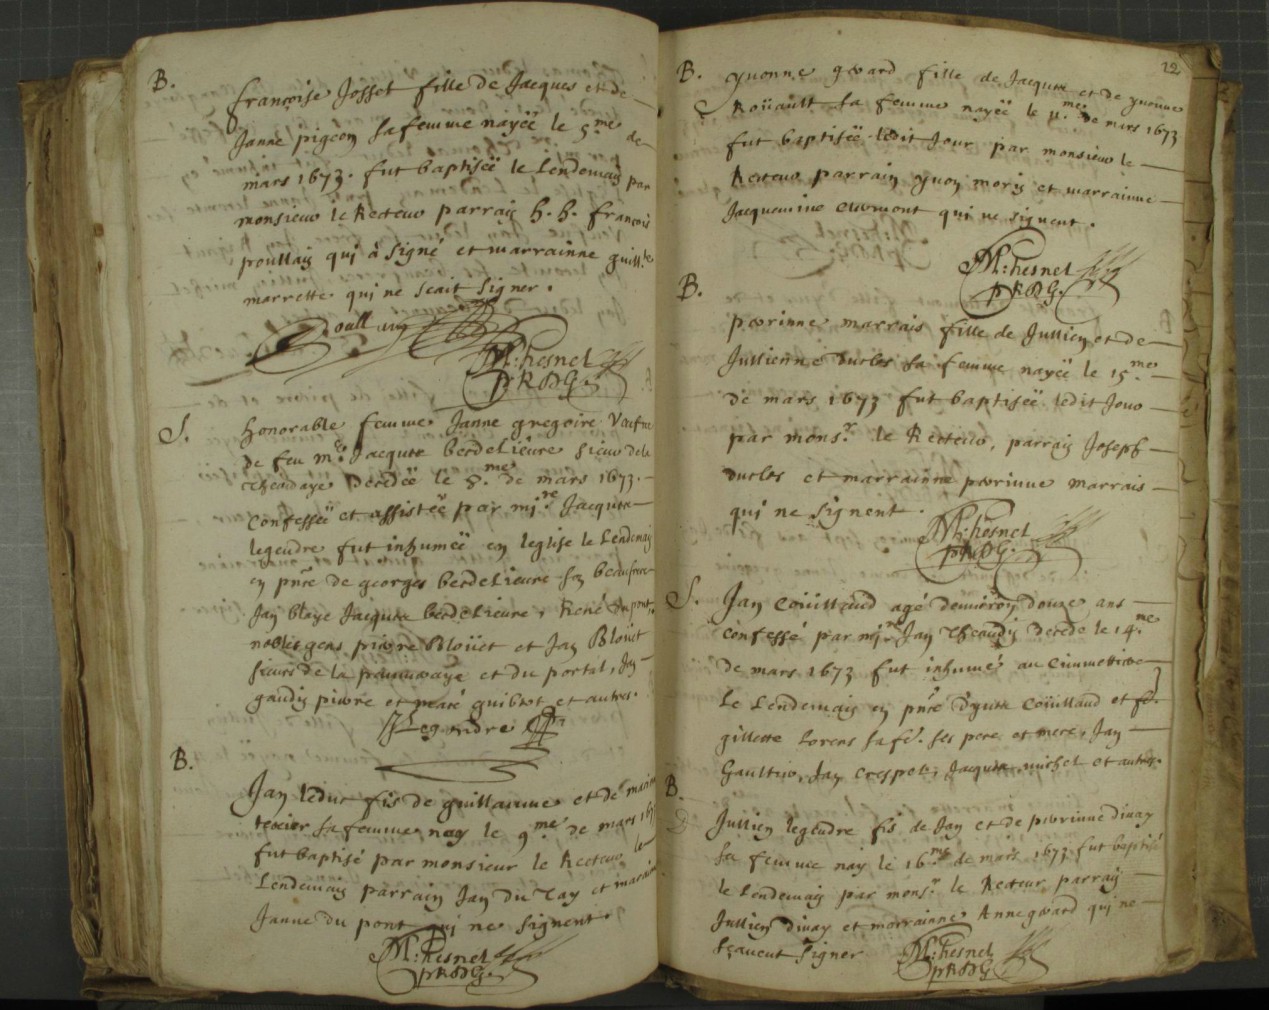 B.
françoise Josset fille de Jacques et de
Janne pigeon sa femme nayëe le 5.me de
mars 1673. fut baptiseë le Lendemaiy par
monsieur le Recteur parraiy h. h. françois
poullaiy qui à signé et marrainne guill.te
marrette qui ne scait signer.
M: hesnel
pRDG.
S.
honorable femme Janne gregoire Veufue
de feu m.e Jacques berdelieure sieur de la
decedeë le 8.me de mars 1673.
Confesseë et assisteë par mi.re Jacques
legendre fut inhumeë en leglise le Lendemaiy
en pñce de georges berdelieure soy beaufrere
Jay blaye Jacques berdelieure, René du pont,
nobles gens pierre Bloüet et Jay Bloüet
sieurs de la et du portal, Jay
gaudiy pierre et guibert et autres.
JLegendre
B.
Jay leduc fis de guillaume et de
texier sa femme nay le 9.me de mars
fut baptisé par monsieur le Recteur le
Lendemaiy parraiy Jay du Tay et
Janne du pont qui ne signent.
M: hesnel
pRDG.
22
B. yuonne gerard fille de Jacques et de yuonne
Roüault sa femme nayëe le 11.me de mars 1673
fut baptiseë ledit Jour par monsieur le
Recteur parraiy yuoy moriy et marrainne
Jacquemine clermont qui ne signent.
M: hesnel
pRDG.
B.
perrinne marrais fille de Jullien et de
Jullienne durles sa femme nayëe le 15.me
de mars 1673 fut baptiseë ledit Jour
par mons.r le Recteur, parraiy Joseph
durles et marrainne perrinne marrais
qui ne signent.
M: hesnel
pRDG.
S. Jay Coüilland agé denuiroy douze ans
confessé par mi.re Jay decedé le 14.me
de mars 1673 fut inhumé au Cimmettiere
le Lendemaiy en pñce Coüilland et
gillette Lorens sa fé. ses pere et mere, Jay
Gaultier, Jay Crespel, Jacques michel et autres.
B.
Jullien legendre fis de Jay et de perrinne diuay
sa femme nay le 16.me de mars 1673 fut baptisé
le Lendemaiy par mons.r le Recteur parraiy
Jullien diuay et marrainne Anne gerard qui ne
sçauent signer
M: hesnel
pRDG